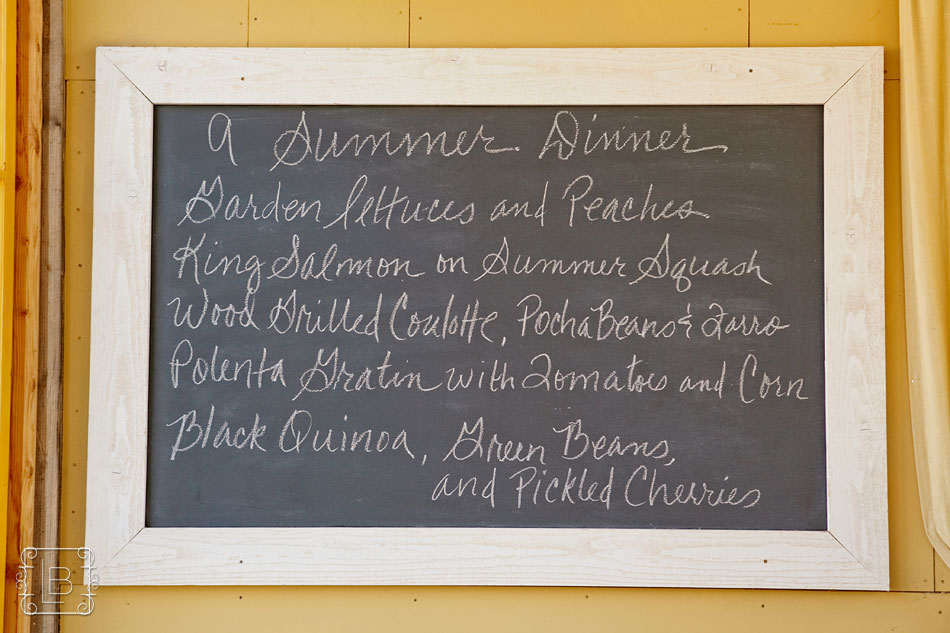 A Summer Dinner
Garden lettuces and Peaches
King Salmon on Summer Squash
Wood Grilled Coulotte, Pocha Beans & Farro
Polenta Gratin with Tomatoes and Corn
Black Quinoa, Green Beans,
and Pickled Cherries
B